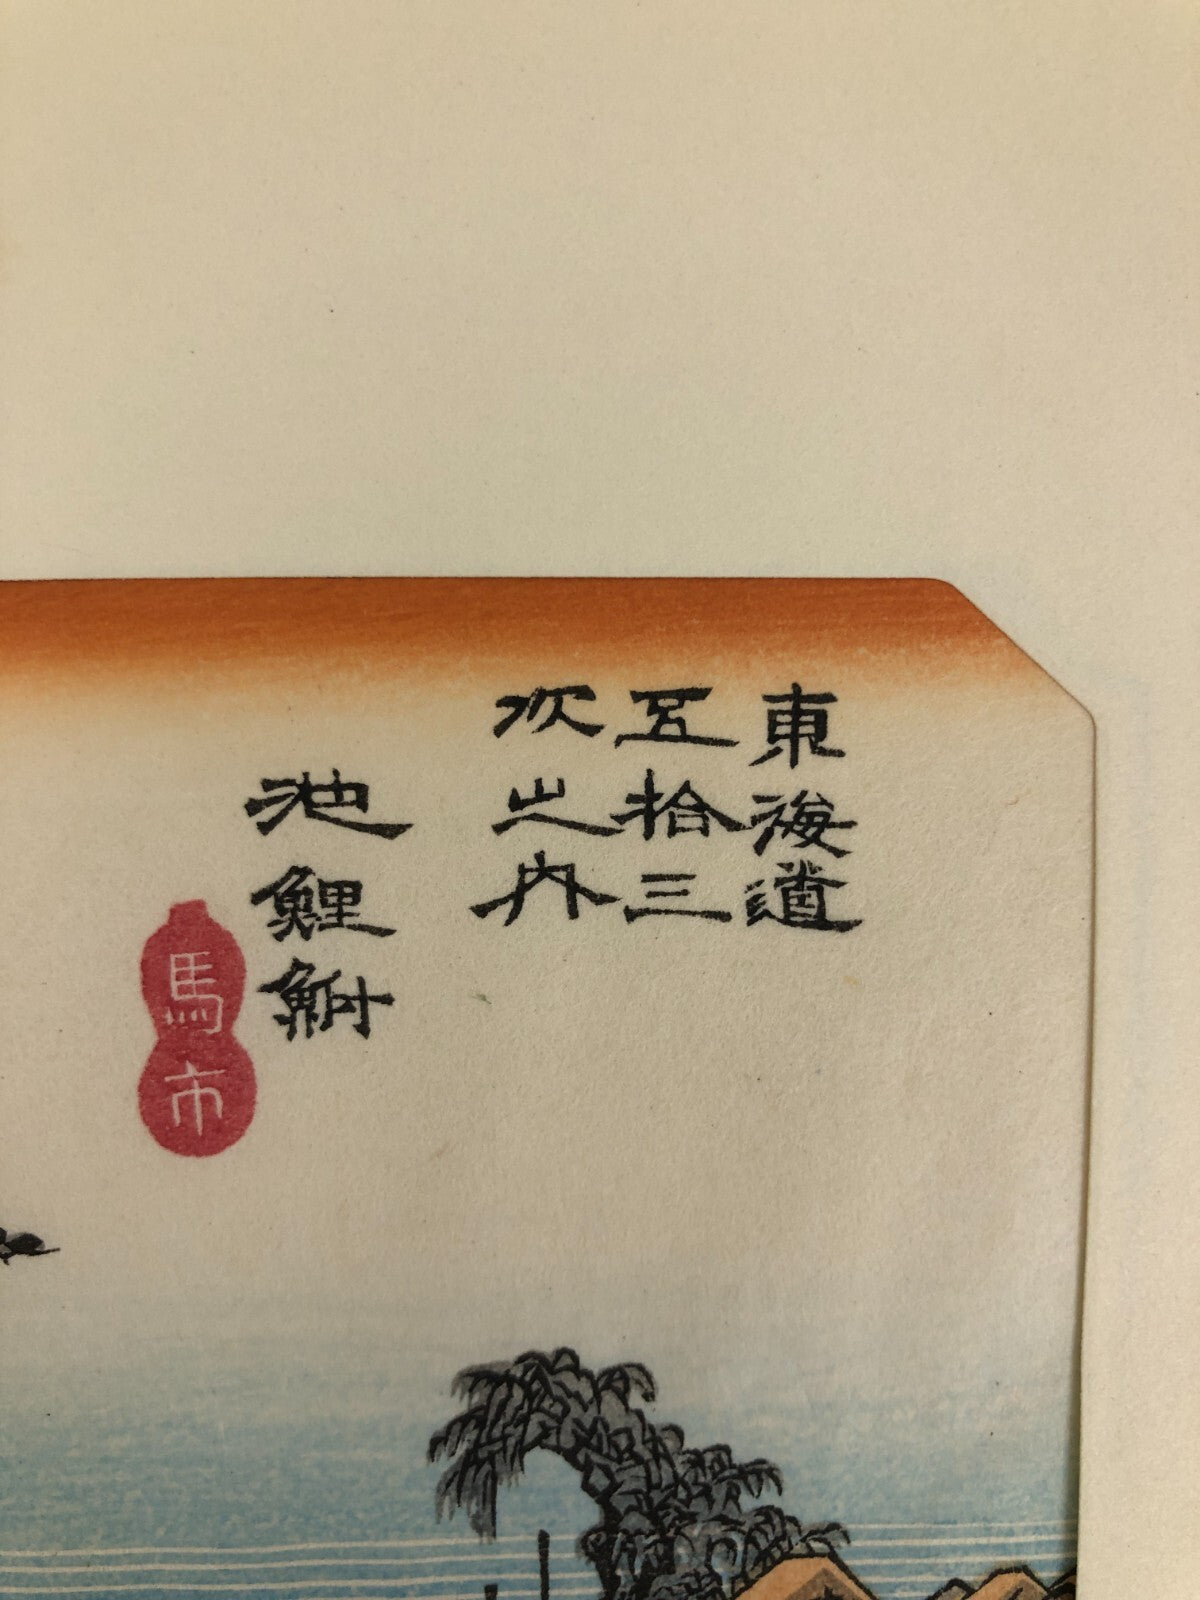 東海道
五拾三
次之内
池鯉鮒
馬市